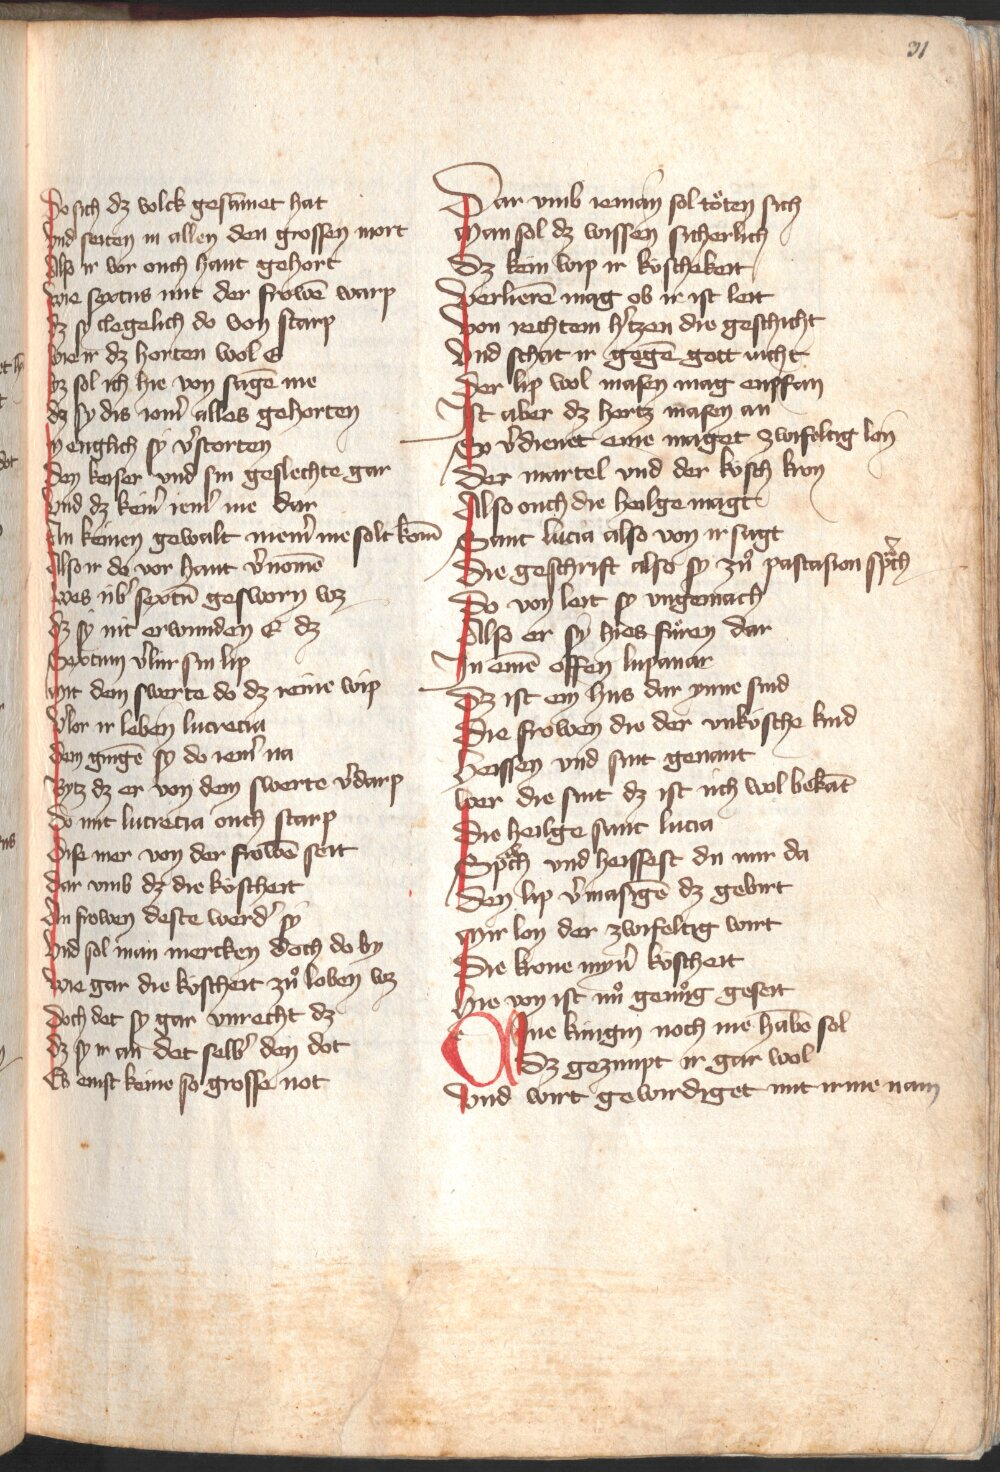 31
Do sich dz volck gesāmet hat
Vnd seiten in allen den grossen mort
Also ir vor ouch hant gehort
Wie sextus mit der frowē warp
Dz sy clegelich do von starp
Wie ir dz horten wol e
Dz sol ich hie von sagē me
Do sy dis iom̄ alles gehorten
Menglich sy v̾storten
Den keiser vnd sin geslechte gar
Vnd dz kein̾ iem̾ me dar
In keinen gewalt niem̾ me solt kom̄
Also ir do vor hant v̾nomē
Wes úb̾ sextū gesworn wz
Dz sy nit erwunden e dz
Sextum v̾lúr sin lip
Mit dem swerte do dz reine wip
V̾lor ir leben lucrecia
Dem gingē sy do iem̾ na
Bytz dz er von dem swerte v̾darp
Do mit lucrecia ouch starp
Dise mer von der frowē seit
Dar vmb dz die kôscheit
An frowen deste werd̾ sy
Vnd sol man mercken doch do by
Wie gar die kôscheit zů loben wz
Doch det sy gar vnrecht dz
Dz sy ir an det selb̾ den dot
Es enist keine so grosse not
Dar vmb ieman sol tôten sich
Man sol dz wissen sicherlich
Dz kein wip ir kôschekeit
Verlierē mag ob ir ist leit
Von rechtem h̾tzen die geschicht
Vnd schat ir gegē gott nicht
Der lip wol masen mag enpfan
Ist aber dz hertz masen an
So v̾dienet eine maget zwifeltig lon
Der martel vnd der kôsch kron
Also ouch die heilge magt
Sant lucia also von ir sagt
Die geschrift also sy zů pascasion sprͣch
Do von leit sy vngemach
Also er sy hies fúren dar
In einē offen lupanar
Dz ist ein hus dar ynne sind
Die frowen die der vnkôsche kind
Heissen vnd sint genant
Wer die sint dz ist úch wol bekāt
Die heilge sant lucia
Sprͣch vnd heissest du mir da
Den lip v̾masigē dz gebirt
Mir lon der zwifeltig wirt
Die krone myn̾ kôscheit
Hie von ist nů genůg geseit
Eine kúngin noch me habē sol
Dz gezimpt ir gar wol
Vnd wirt gewirdiget mit irme nam